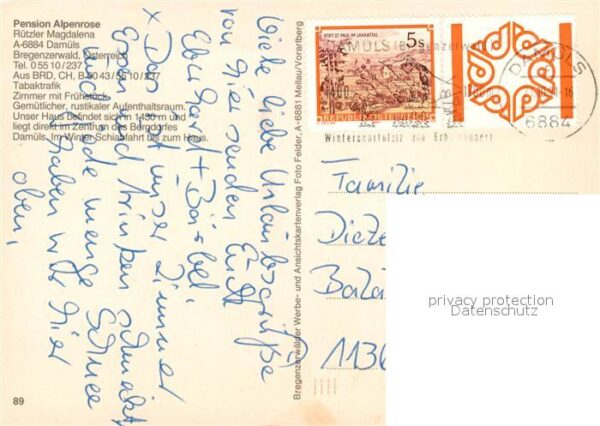 Pension Alpenrose
Rützler Magdalena
A-6884 Damüls
Bregenzerwald, Österreich
Tel. 0 55 10 / 237
Aus BRD, CH, B 00 43 / 55 10 / 237
Tabaktrafik
Zimmer mit Frühstück
Gemütlicher, rustikaler Aufenthaltsraum.
Unser Haus befindet sich in 1430 m und
liegt direkt im Zentrum des Bergdorfes
Damüls. Im Winter Schiabfahrt bis zum Haus.
Viele liebe Urlaubsgrüße
von hier senden Euch
Ekkehard + Bärbel.
x Das ist unser Zimmer
Essen und trinken schmeckt
und jede menge Schnee
haben wir hier
oben.
89
Bregenzerwälder Werbe- und Ansichtskartenverlag Foto Felder, A-6881 Mellau/Vorarlberg
STIFT ST. PAUL IM LAVANTTAL
5s
REPUBLIK ÖSTERREICH
DAMÜLS
6884
Familie
Dieze
Baza
1136
privacy protection
Datenschutz